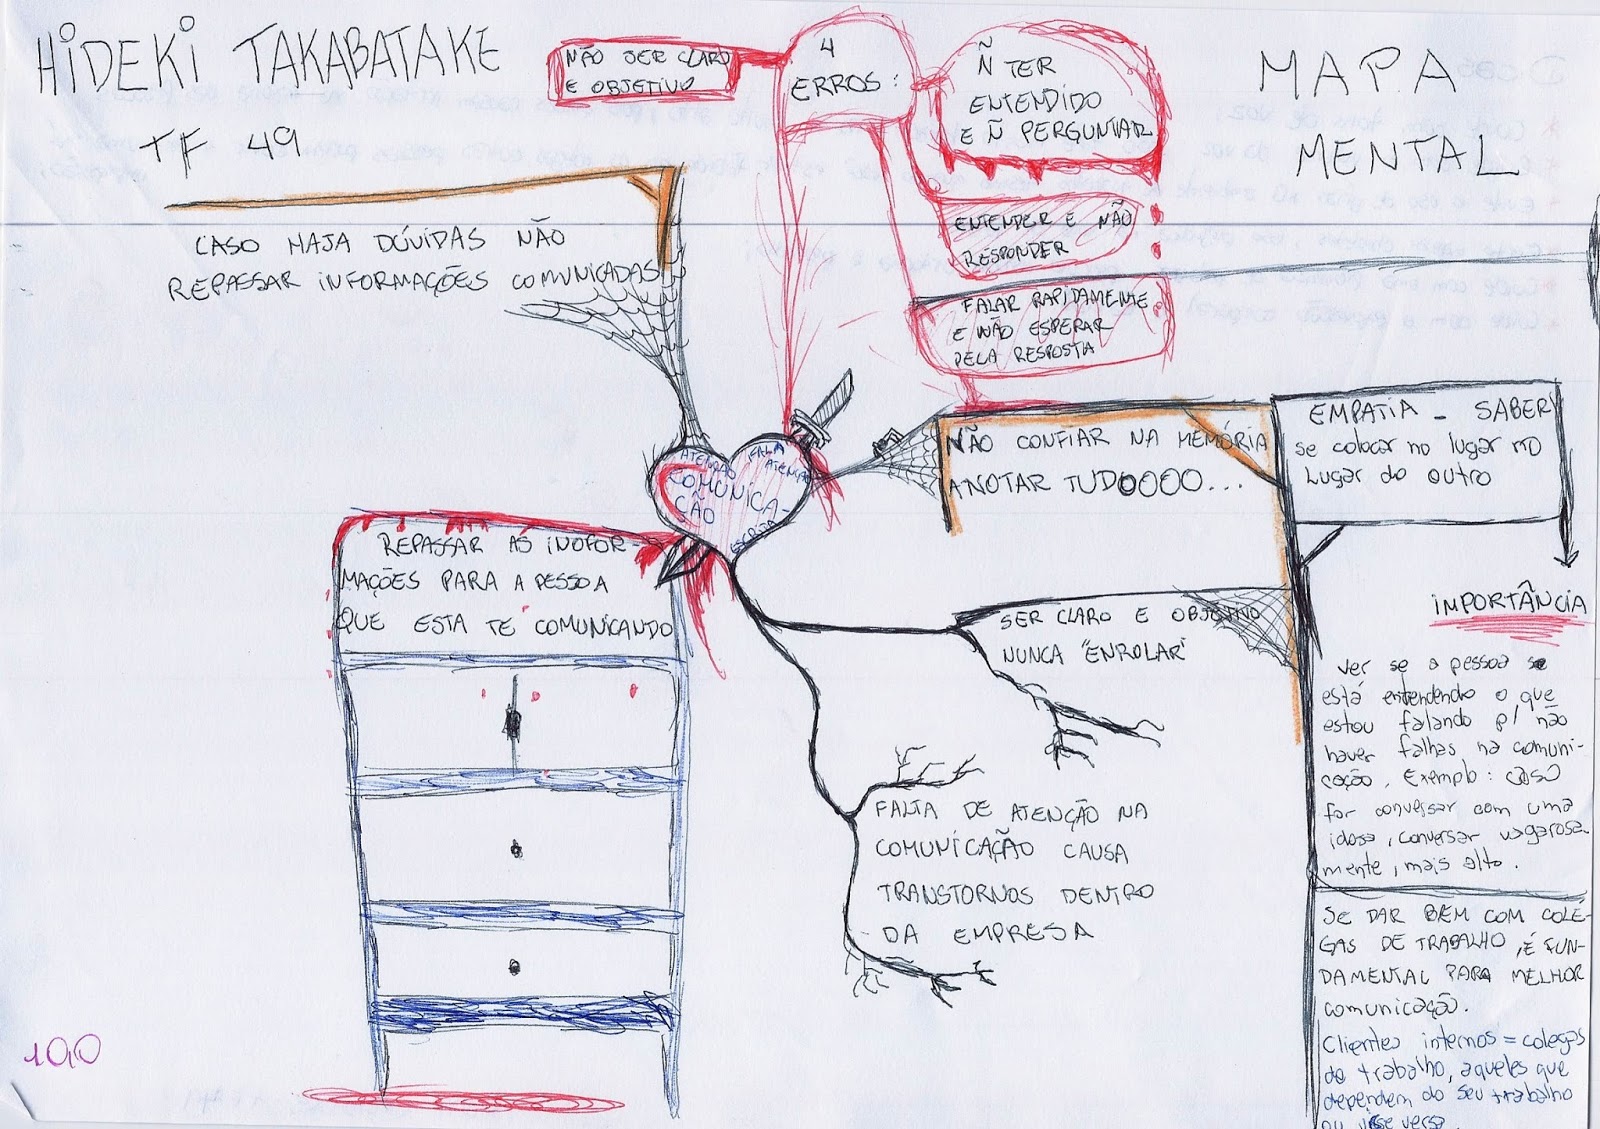 HIDEKI TAKABATAKE
TF 49
MAPA
MENTAL
4
ERROS:
NÃO SER CLARO
E OBJETIVO
Ñ TER
ENTENDIDO
E Ñ PERGUNTAR
ENTENDER E NÃO
RESPONDER
FALAR RAPIDAMENTE
E NÃO ESPERAR
PELA RESPOSTA
CASO HAJA DÚVIDAS NÃO
REPASSAR INFORMAÇÕES COMUNICADAS
ATENÇÃO
FALA
ATENÇÃO
COMUNICA-
ÇÃO
ESCRITA
NÃO CONFIAR NA MEMÓRIA
ANOTAR TUDOOOO...
EMPATIA - SABER
se colocar no lugar no
lugar do outro
REPASSAR AS INOFOR-
MAÇÕES PARA A PESSOA
QUE ESTA TE COMUNICANDO
SER CLARO E OBJETIVO
NUNCA "ENROLAR"
FALTA DE ATENÇÃO NA
COMUNICAÇÃO CAUSA
TRANSTORNOS DENTRO
DA EMPRESA
IMPORTÂNCIA
Ver se a pessoa
está entendendo o que
estou falando p/ não
haver falhas na comuni-
cação. Exemplo: caso
for conversar com uma
idosa, conversar vagarosa-
mente, mais alto.
SE DAR BEM COM COLE-
GAS DE TRABALHO, É FUN-
DAMENTAL PARA MELHOR
comunicação.
Clientes internos = colegas
de trabalho, aqueles que
dependem do seu trabalho
ou versa
10,0